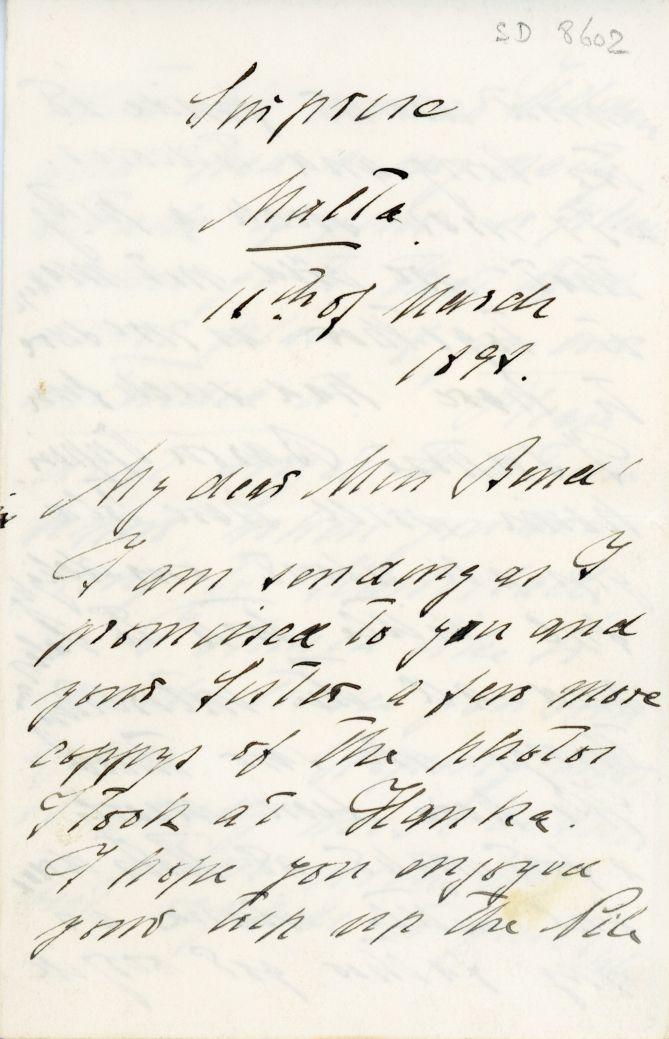 SD 8602
Malta.
11th of March
1898.
My dear Miss Bond
I am sending as I
promised to you and
your Sister a few more
coppys of the photos
I took at Hanka.
I hope you enjoyed
your trip up the Nile